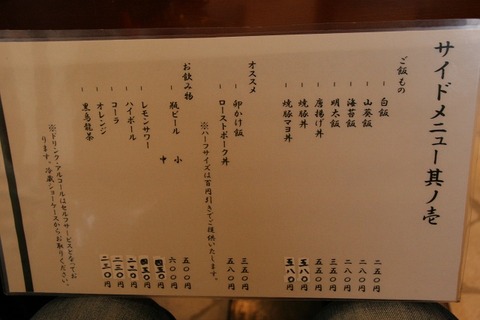 サイドメニュー其ノ壱
ご飯もの
- 白飯 二五〇円
- 山葵飯 二八〇円
- 海苔飯 二八〇円
- 明太飯 三五〇円
- 唐揚げ丼 五五〇円
- 焼豚丼 五八〇円
- 焼豚マヨ丼 五八〇円
オススメ
- 卵かけ飯 三五〇円
- ローストポーク丼 五八〇円
※ハーフサイズは百円引きでご提供いたします。
お飲み物
- 瓶ビール 小 五〇〇円
中 六〇〇円
- レモンサワー 四五〇円
- ハイボール 四五〇円
- コーラ 二三〇円
- オレンジ 二三〇円
- 黒烏龍茶 二三〇円
※ドリンク・アルコールはセルフサービスとなってお
ります。冷蔵ショーケースからお取りください。